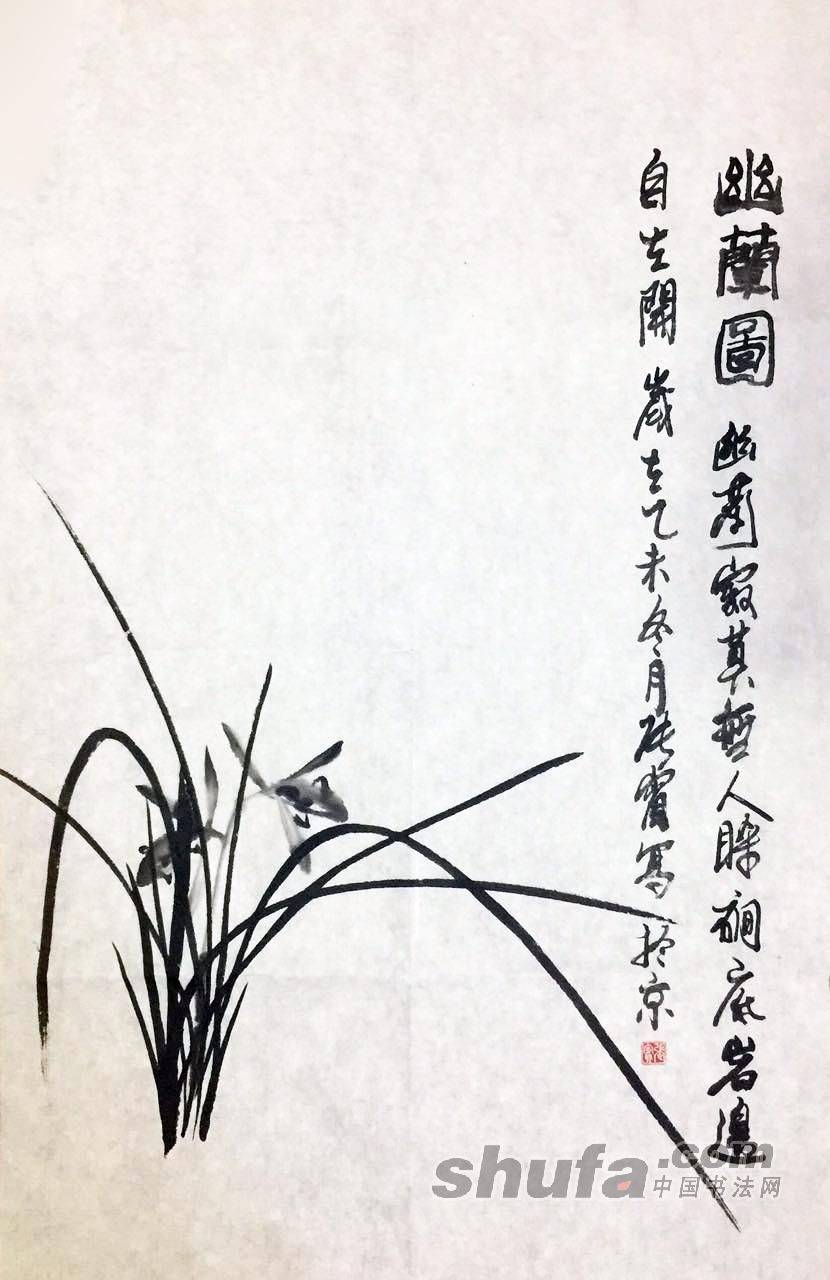 幽蘭圖 幽蘭寂莫哲人睬澗底岩邊
自在開 歲在乙未冬月張寫於京
shufa.com
中国书法网